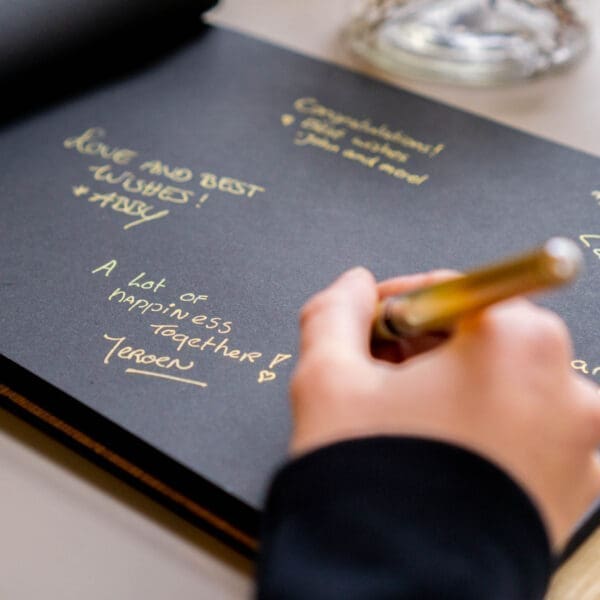 Congratulations!
Best wishes
John and more!
LOVE AND BEST
WISHES!
* ABBY
A Lot of
happiness
Together!
JEROEN
ar